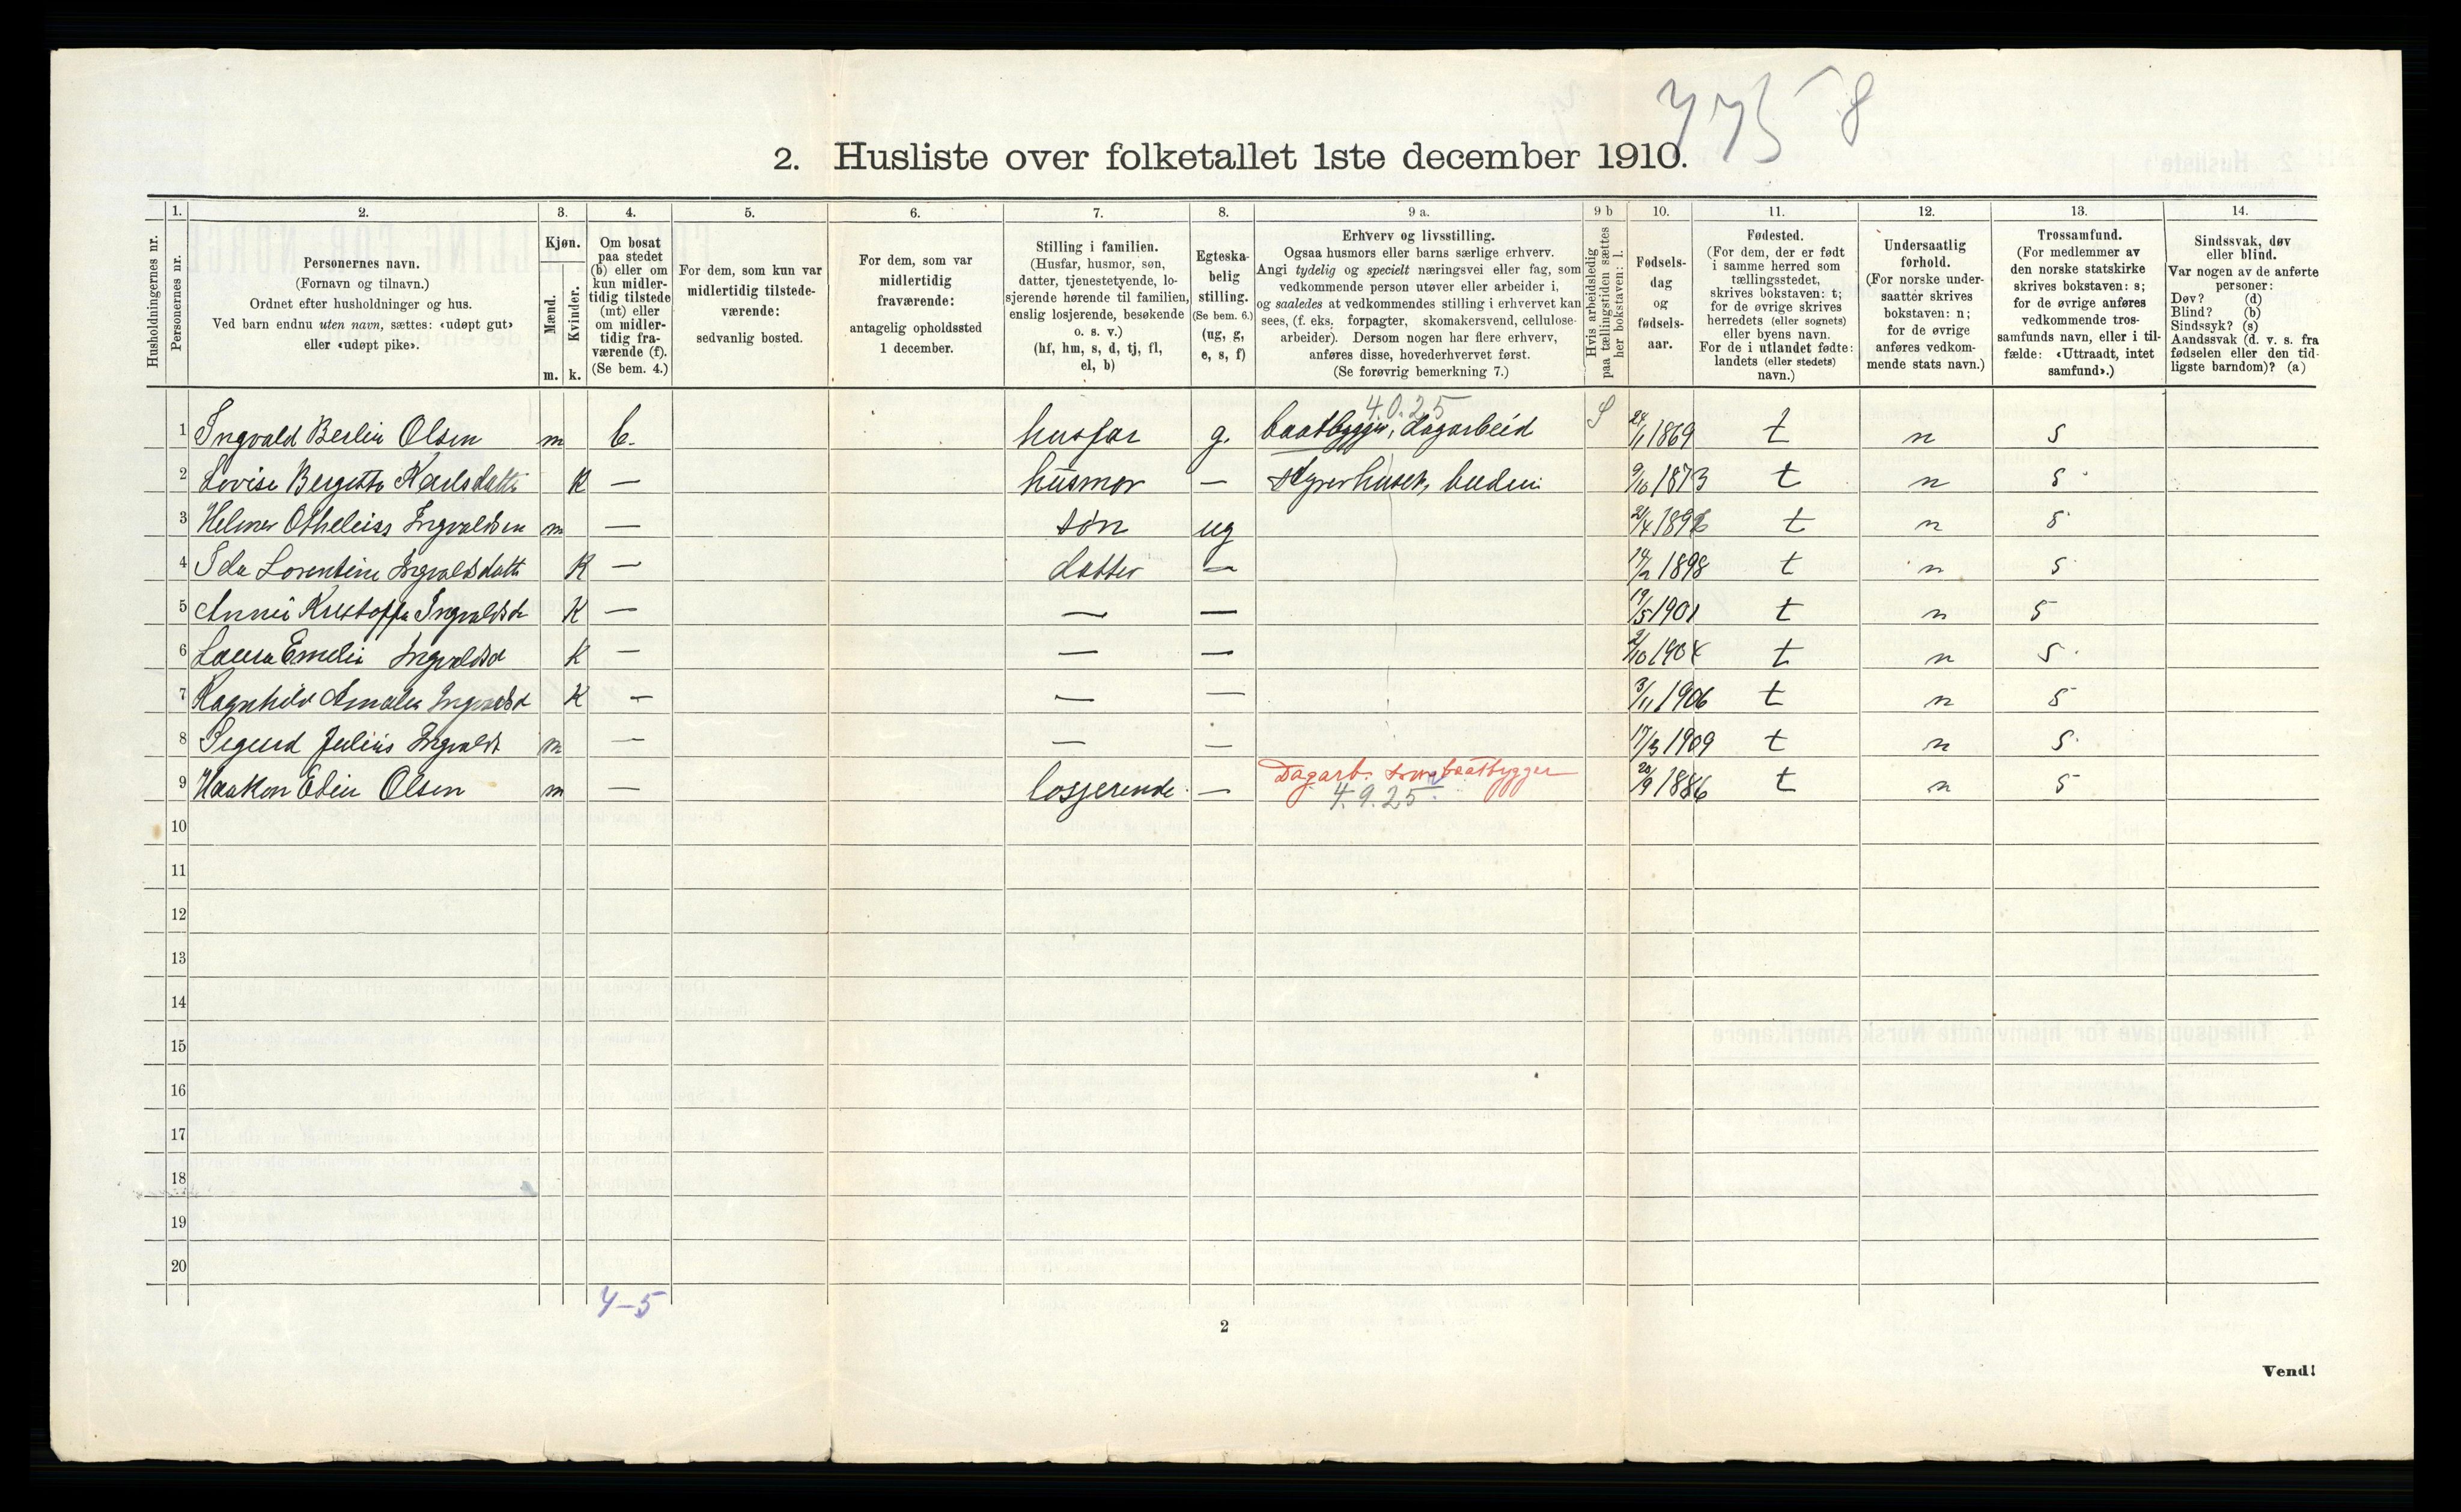 7758
2. Husliste over folketallet 1ste december 1910.
Husholdningernes nr.
1. Personernes nr.
2. Personernes navn.
(Fornavn og tilnavn.)
Ordnet efter husholdninger og hus.
Ved barn endnu uten navn, sættes: «udøpt gut»
eller «udøpt pike».
3. Kjøn.
Mænd. Kvinder.
m. k.
4. Om bosat
paa stedet
(b) eller om
kun midler-
tidig tilstede
(mt) eller
om midler-
tidig fra-
værende (f).
(Se bem. 4.)
5. For dem, som kun var
midlertidig tilstede-
værende:
sedvanlig bosted.
6. For dem, som var
midlertidig
fraværende:
antagelig opholdssted
1 december.
7. Stilling i familien.
(Husfar, husmor, søn,
datter, tjenestetyende, lo-
sjerende hørende til familien,
enslig losjerende, besøkende
o. s. v.)
(hf, hm, s, d, tj, fl,
el, b)
8. Egteska-
belig
stilling.
(Se bem. 6.)
(ug, g,
e, s, f)
9 a. Erhverv og livsstilling.
Ogsaa husmors eller barns særlige erhverv.
Angi tydelig og specielt næringsvei eller fag, som
vedkommende person utøver eller arbeider i,
og saaledes at vedkommendes stilling i erhvervet kan
sees, (f. eks. forpagter, skomakersvend, cellulose-
arbeider). Dersom nogen har flere erhverv,
anføres disse, hovederhvervet først.
(Se forøvrig bemerkning 7.)
9 b Hvis arbeidsledig
paa tællingstiden sættes
her bokstaven: l.
10. Fødsels-
dag
og
fødsels-
aar.
11. Fødested.
(For dem, der er født
i samme herred som
tællingsstedet,
skrives bokstaven: t;
for de øvrige skrives
herredets (eller sognets)
eller byens navn.
For de i utlandet fødte:
landets (eller stedets)
navn.)
12. Undersaatlig
forhold.
(For norske under-
saatter skrives
bokstaven: n;
for de øvrige
anføres vedkom-
mende stats navn.)
13. Trossamfund.
(For medlemmer av
den norske statskirke
skrives bokstaven: s;
for de øvrige anføres
vedkommende tros-
samfunds navn, eller i til-
fælde: «Uttraadt, intet
samfund».)
14. Sindssvak, døv
eller blind.
Var nogen av de anførte
personer:
Døv? (d)
Blind? (b)
Sindssyk? (s)
Aandssvak (d. v. s. fra
fødselen eller den tid-
ligste barndom)? (a)
4.0.25
1 Ingvald Berlin Olsen m b. husfar g. baatbygger, dagarbeid S 24/1 1869 t n s
2 Lovise Bergitte Karlsdatte K — husmor — styrer huset, buden 9/10 1873 t n s
3 Helmer Ingvaldsen m — søn ug 2/4 1896 t n s
4 Ida Lorentine Ingvaldsdatt K — datter — 14/2 1898 t n s
5 Anna Kristoffa Ingvaldsd K — — — 19/5 1901 t n s
6 Laura Emelie Ingvaldsd K — — — 2/10 1904 t n s
7 Ragnhild Amalia Ingvaldsd K — — — 3/11 1906 t n s
8 Sigurd Julius Ingvalds m — — — 17/3 1909 t n s
9 Haakon Edin Olsen m — losjerende — Dagarb. som baatbygger 20/9 1886 t n s
4.9.25
10
11
12
13
14
15
16
17
18
19
20
4-5
2
Vend!